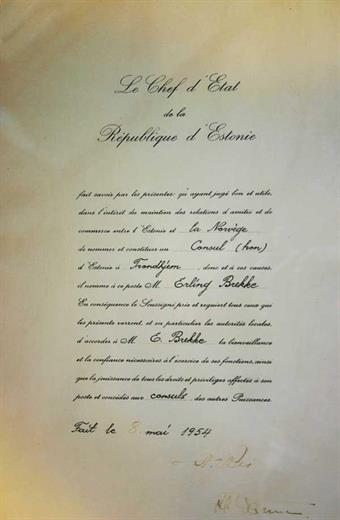 Le Chef d'Etat
de la
République d'Estonie
fait savoir par les présentes qu'ayant jugé bon et utile,
dans l'intérêt du maintien des relations d'amitié et de
commerce entre l'Estonie et la Norvège
de nommer et constituer un Consul (hon)
d'Estonie à Trondhjem, donc et à ces causes,
il nomme à ce poste M. Erling Brekke
En conséquence le Soussigné prie et requiert tous ceux que
les présente verront, et en particulier les autorités locales,
d'accorder à M. E. Brekke la bienveillance
et la confiance nécessaires à l'exercice de ses fonctions, ainsi
que la jouissance de tous les droits et privilèges affectés à son
poste et concédés aux consuls des autres Puissances.
Fait le 8. mai 1954